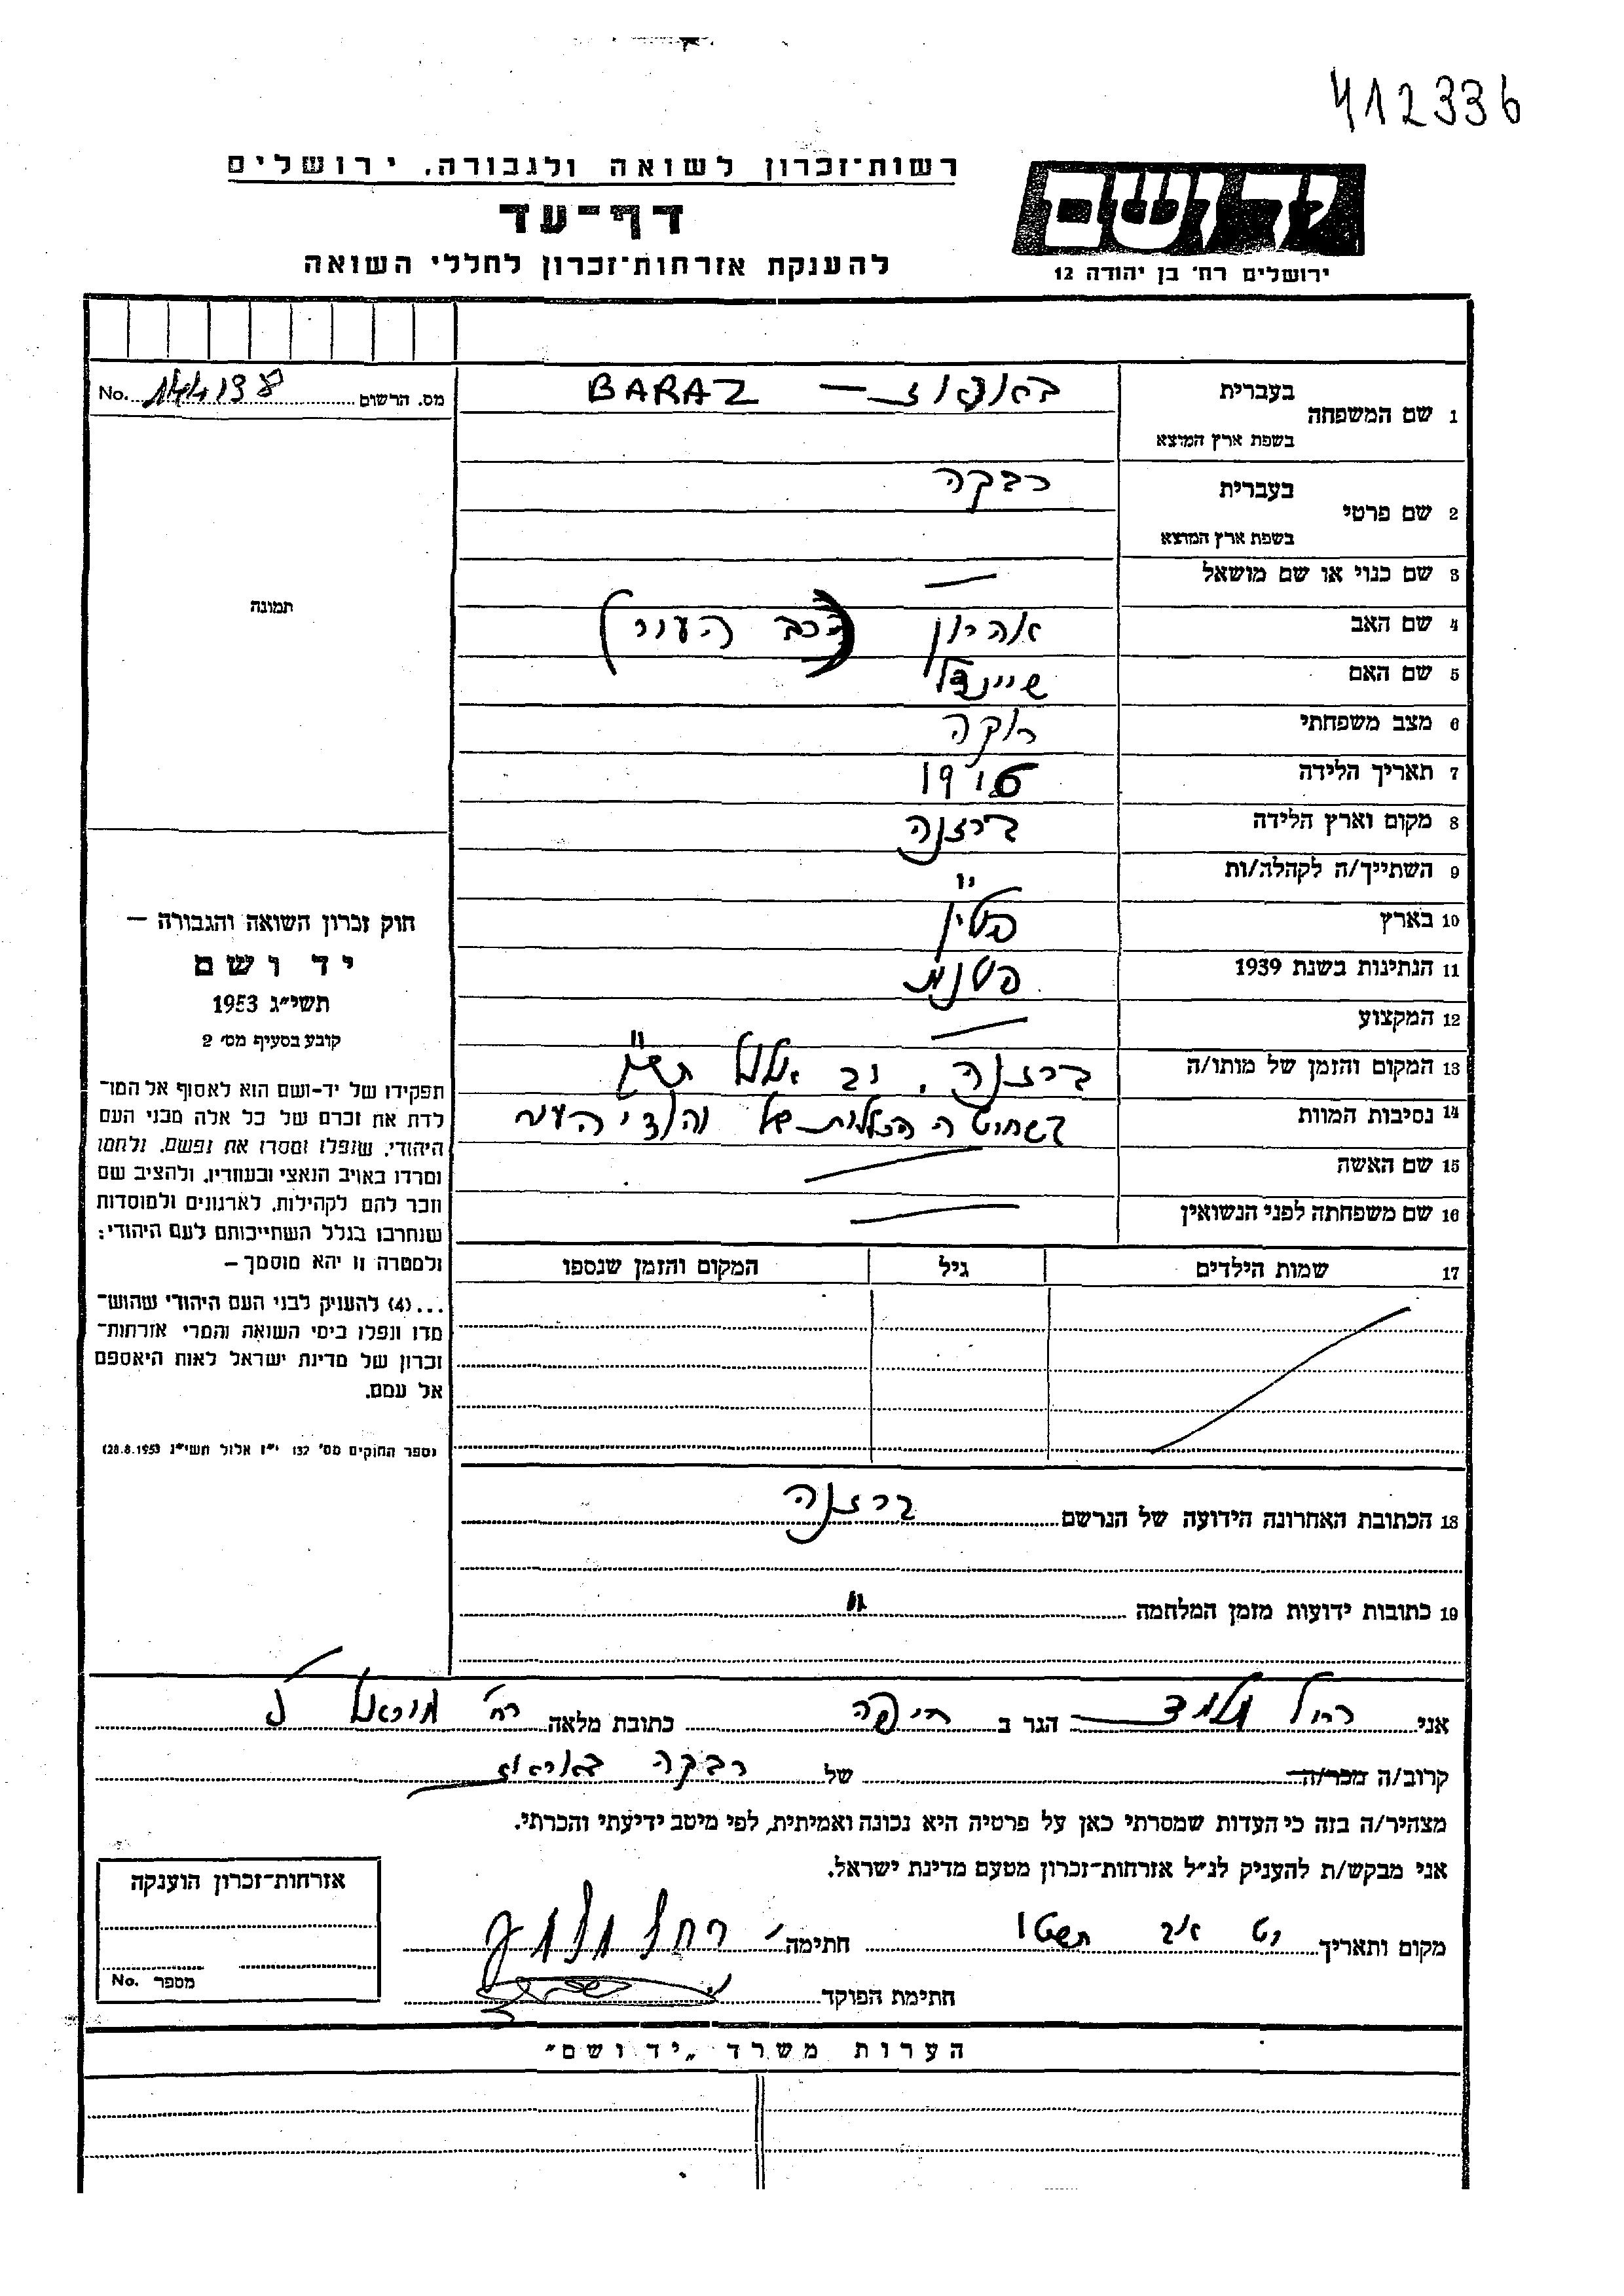 412336
רשות־זכרון לשואה ולגבורה, ירושלים
דף־עד
להענקת אזרחות־זכרון לחללי השואה
יד ושם
ירושלים רח' בן יהודה 12
מס. הרשום 144138 No.
תמונה
חוק זכרון השואה והגבורה —
יד ושם
תשי״ג 1953
קובע בסעיף מס' 2
תפקידו של יד-ושם הוא לאסוף אל המו־
לדת את זכרם של כל אלה מבני העם
היהודי, שנפלו ומסרו את נפשם, נלחמו
ומרדו באויב הנאצי ובעוזריו, ולהציב שם
וזכר להם לקהילות, לארגונים ולמוסדות
שנחרבו בגלל השתייכותם לעם היהודי;
ולמטרה זו יהא מוסמך –
...(4) להעניק לבני העם היהודי שהוש־
מדו ונפלו בימי השואה והמרי אזרחות־
זכרון של מדינת ישראל לאות היאספם
אל עמם.
(ספר החוקים מס' 132 י״ז אלול תשי״ג 28.8.1953)
1 שם המשפחה בעברית BARAZ —
בשפת ארץ המוצא
2 שם פרטי בעברית רבקה
בשפת ארץ המוצא
3 שם כנוי או שם מושאל —
4 שם האב אהרון
5 שם האם שיינדל
6 מצב משפחתי רוקה
7 תאריך הלידה 1916
8 מקום וארץ הלידה ברזנה
9 השתייך/ה לקהלה/ות "
10 בארץ פולין
11 הנתינות בשנת 1939
12 המקצוע —
13 המקום והזמן של מותו/ה ברזנה,
14 נסיבות המוות בשחיטה הכללית של יהודי העיר
15 שם האשה —
16 שם משפחתה לפני הנשואין —
17 שמות הילדים גיל המקום והזמן שנספו
18 הכתובת האחרונה הידועה של הנרשם ברזנה
19 כתובות ידועות מזמן המלחמה "
אני רחל הגר ב חיפה כתובת מלאה רח'
קרוב/ה מכר/ה של רבקה
מצהיר/ה בזה כי העדות שמסרתי כאן על פרטיה היא נכונה ואמיתית, לפי מיטב ידיעתי והכרתי.
אני מבקש/ת להעניק לנ״ל אזרחות-זכרון מטעם מדינת ישראל.
מקום ותאריך חתימה רחל
חתימת הפוקד
אזרחות-זכרון הוענקה
מספר No.
הערות משרד „יד ושם"